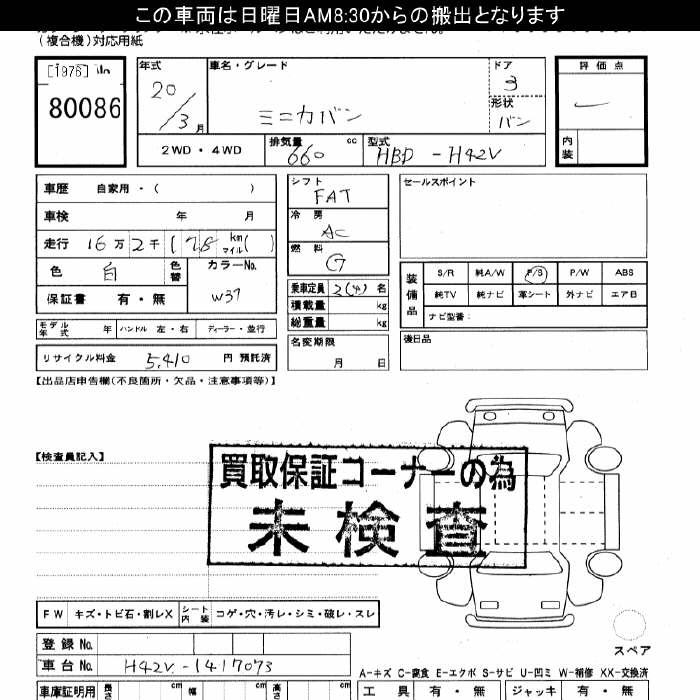 この車両は日曜日AM8:30からの搬出となります
(複合機)対応用紙
[1976]
80086
年式
20/3月
車名・グレード
ミニカバン
ドア
3
形状
バン
評価点
内装
2WD・4WD
排気量
660 cc
型式
HBD-H42V
車歴 自家用・( )
車検 年 月
走行 16万2千178 km マイル( )
色 白 色替
カラーNo.
W37
保証書 有・無
シフト
FAT
冷房
AC
燃料
G
乗車定員 2(4) 名
積載量 kg
総重量 kg
名変期限
月 日
セールスポイント
装備品
S/R 純A/W P/S P/W ABS
純TV 純ナビ 革シート 外ナビ エアB
ナビ型番:
後日品
モデル年式 年 ハンドル 左・右 ディーラー・並行
リサイクル料金 5,410 円 預託済
【出品店申告欄(不良箇所・欠品・注意事項等)】
【検査員記入】
買取保証コーナーの為
未検査
FW キズ・トビ石・割レX シート内装 コゲ・穴・汚レ・シミ・破レ・スレ
登録No.
車台No. H42V-1417073
スペア
A-キズ C-腐食 E-エクボ S-サビ U-凹ミ W-補修 XX-交換済
車庫証明用 長さ cm 幅 cm 高さ cm
工具 有・無 ジャッキ 有・無